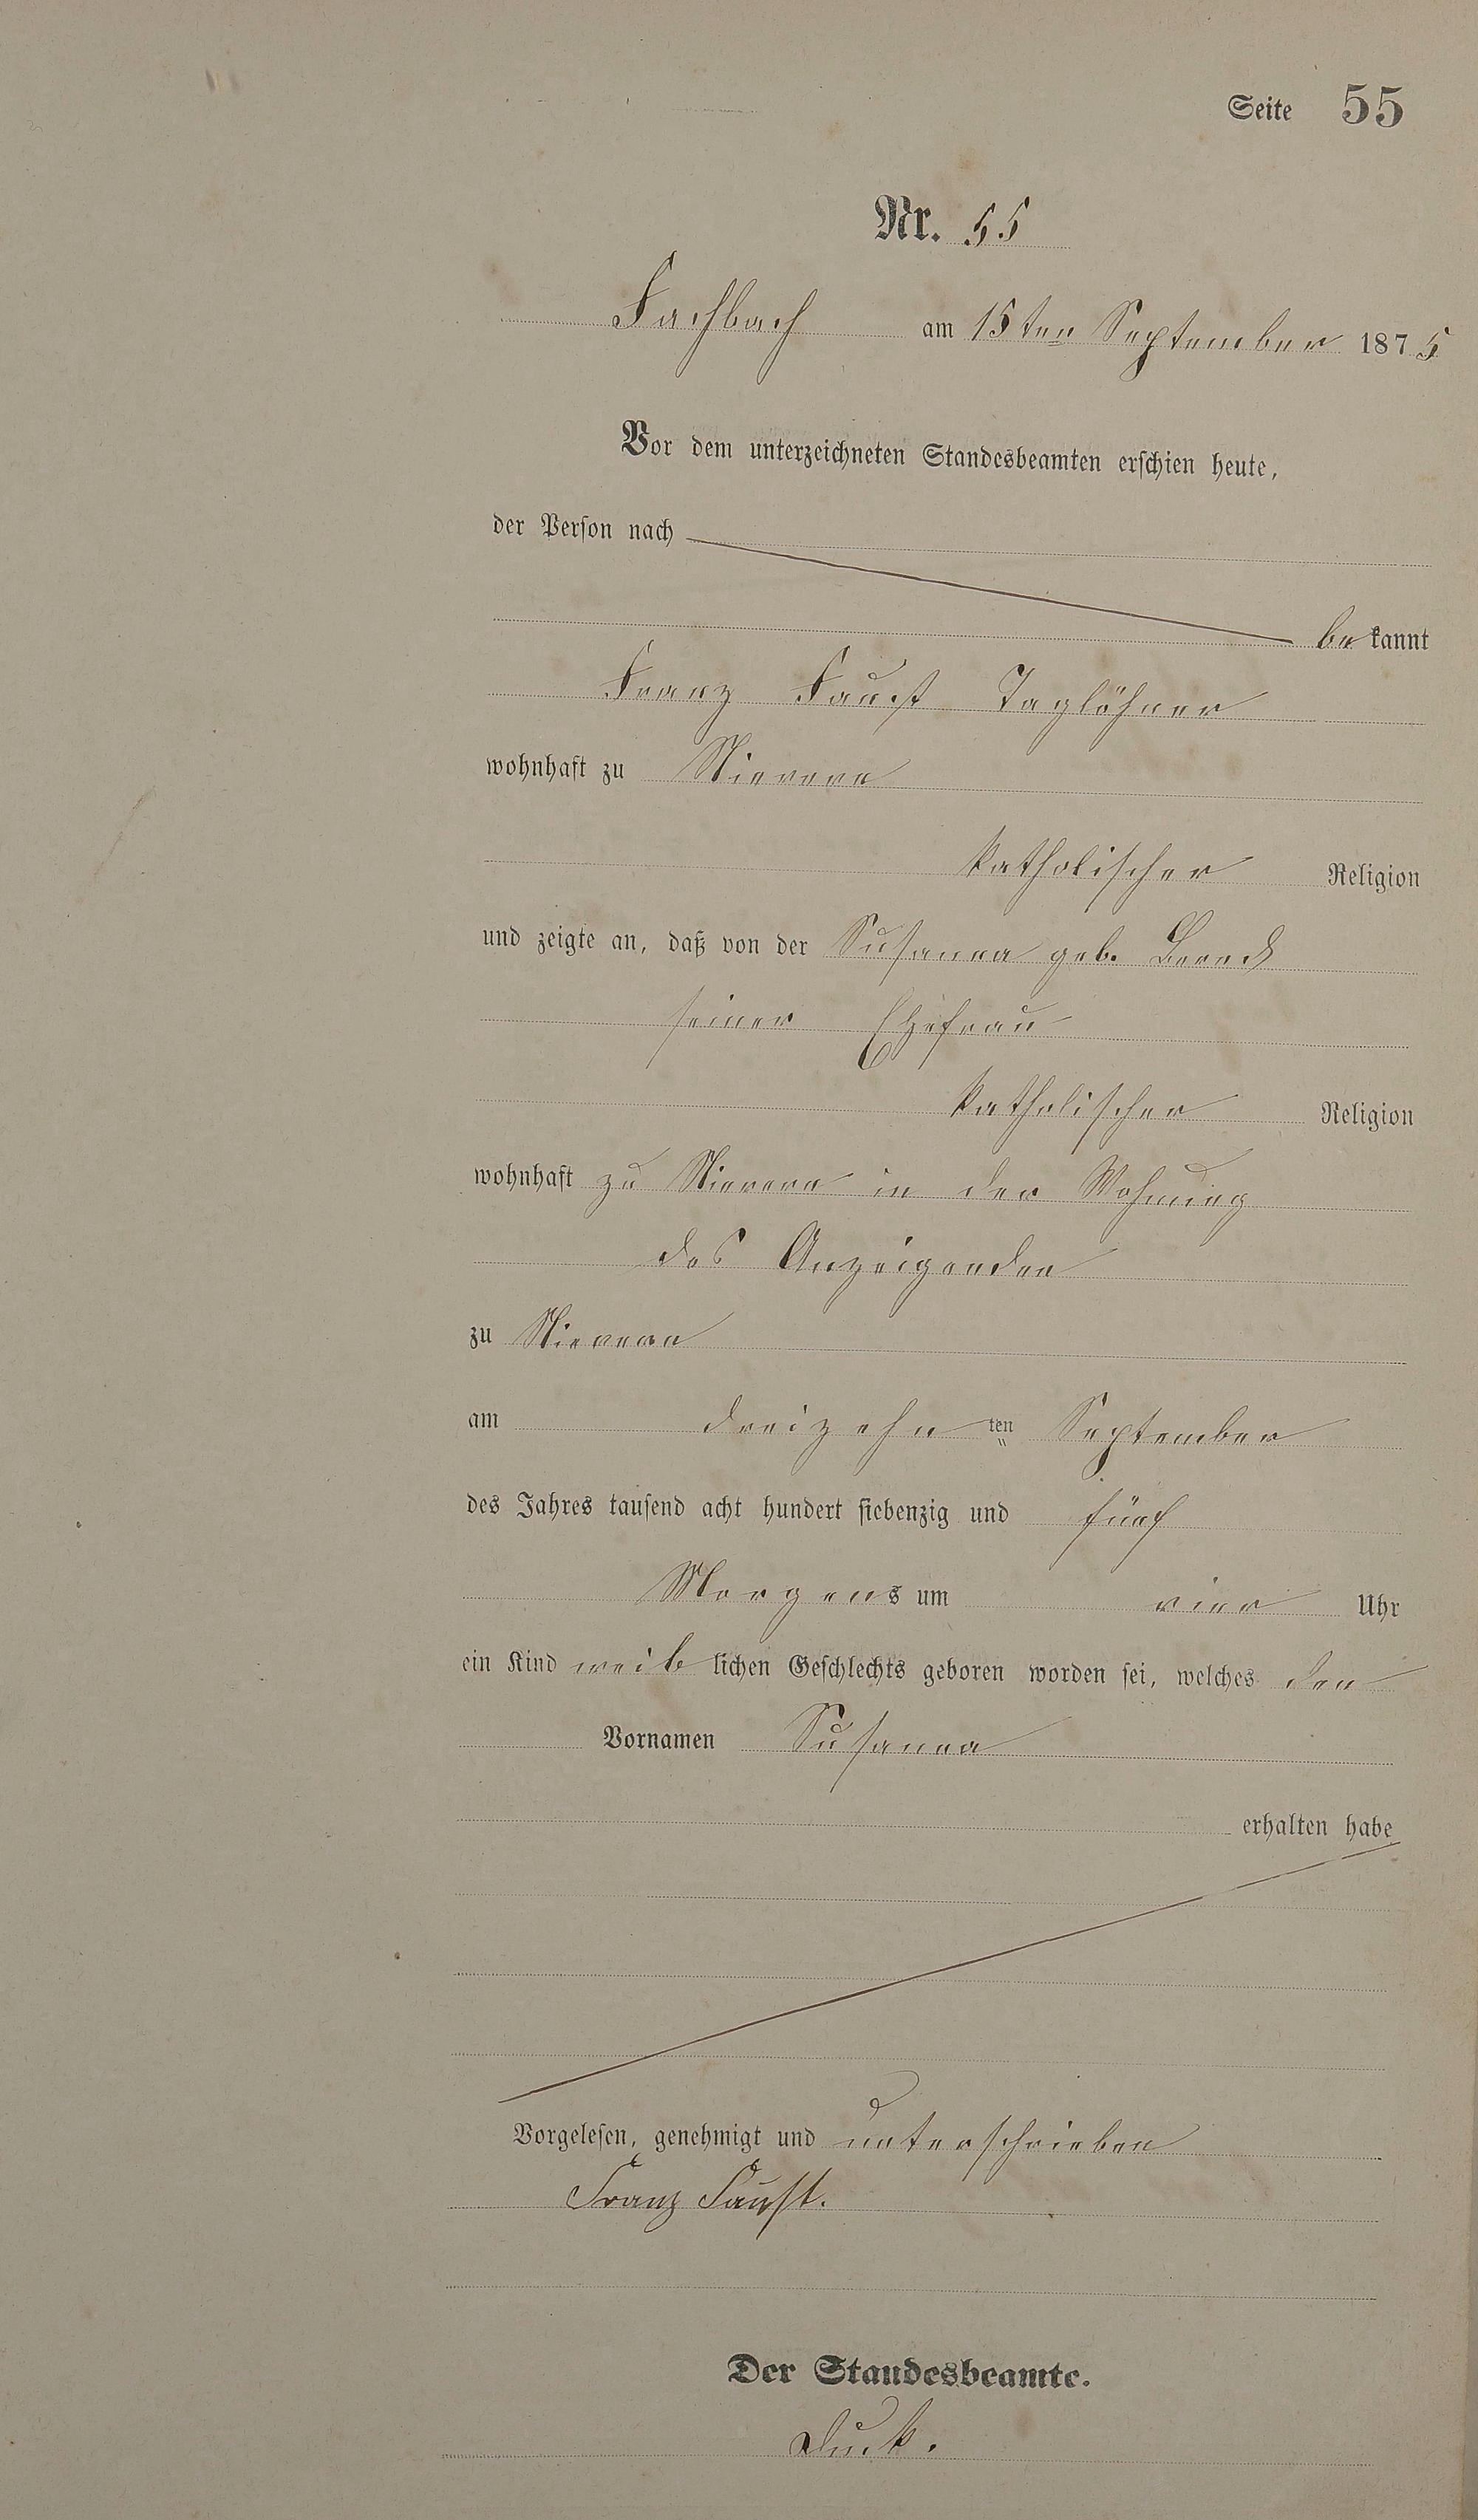 Seite 55
Nr. 55
Fachbach am 15ten September 1875
Vor dem unterzeichneten Standesbeamten erschien heute,
der Person nach
bekannt
Franz Faust Taglöhner
wohnhaft zu Nievern
katholischer Religion
und zeigte an, daß von der Susanna geb.
seiner Ehefrau
katholischer Religion
wohnhaft zu Nievern in der Wohnung
des Anzeigenden
zu Nievern
am dreizehn ten September
des Jahres tausend acht hundert siebenzig und fünf
Morgens um vier Uhr
ein Kind weiblichen Geschlechts geboren worden sei, welches den
Vornamen Susanna
erhalten habe
Vorgelesen, genehmigt und unterschrieben
Franz Faust.
Der Standesbeamte.